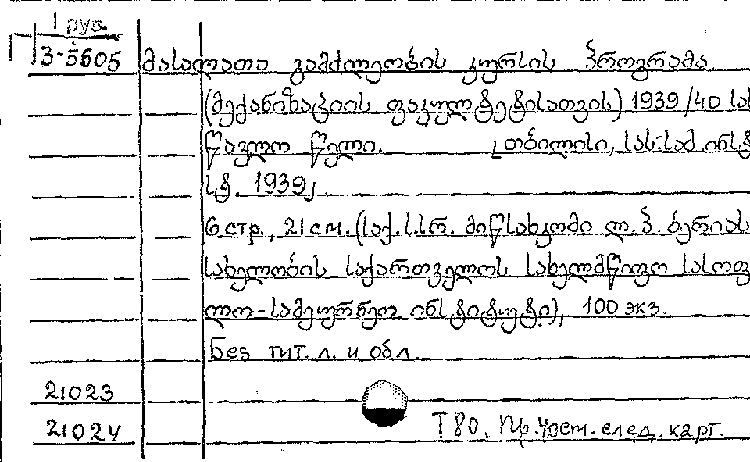 1 руб.
3-5605 მასალათა გამძლეობის კურსის პროგრამა
(მექანიზაციის ფაკულტეტისათვის) 1939/40 სას
წავლო წელი. [თბილისი, სას.-სამ. ინსტ
სტ. 1939]
6 стр., 21 см. (საქ.ს.ს.რ. მიწსახკომი ლ. პ. ბერიას
სახელობის საქართველოს სახელმწიფო სასოფ
ლო-სამეურნეო ინსტიტუტი), 100 экз.
Без тит. л. и обл.
21023
21024 Т 80. Пр. след. карт.